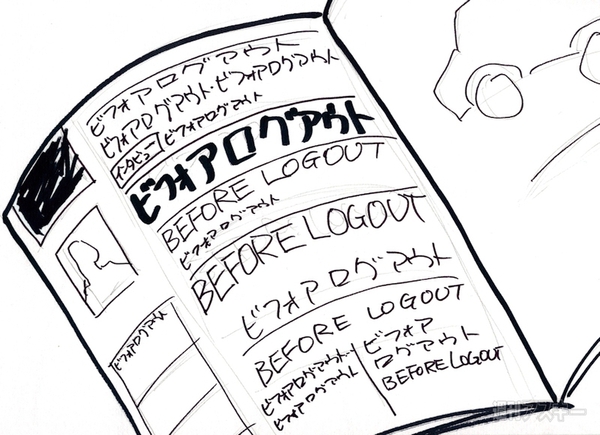 ビフォアログアウト
ビフォアログアウト・ビフォアログアウト
インタビュー ビフォアログアウト
ビフォアログアウト
BEFORE LOGOUT
ビフォアログアウト
BEFORE LOGOUT
ビフォアログアウト
BEFORE LOGOUT
ビフォアログアウト
ビフォアログアウト
ビフォアログアウト
ビフォア
ログアウト
BEFORE LOGOUT
ビフォアログアウト
週刊アスキー